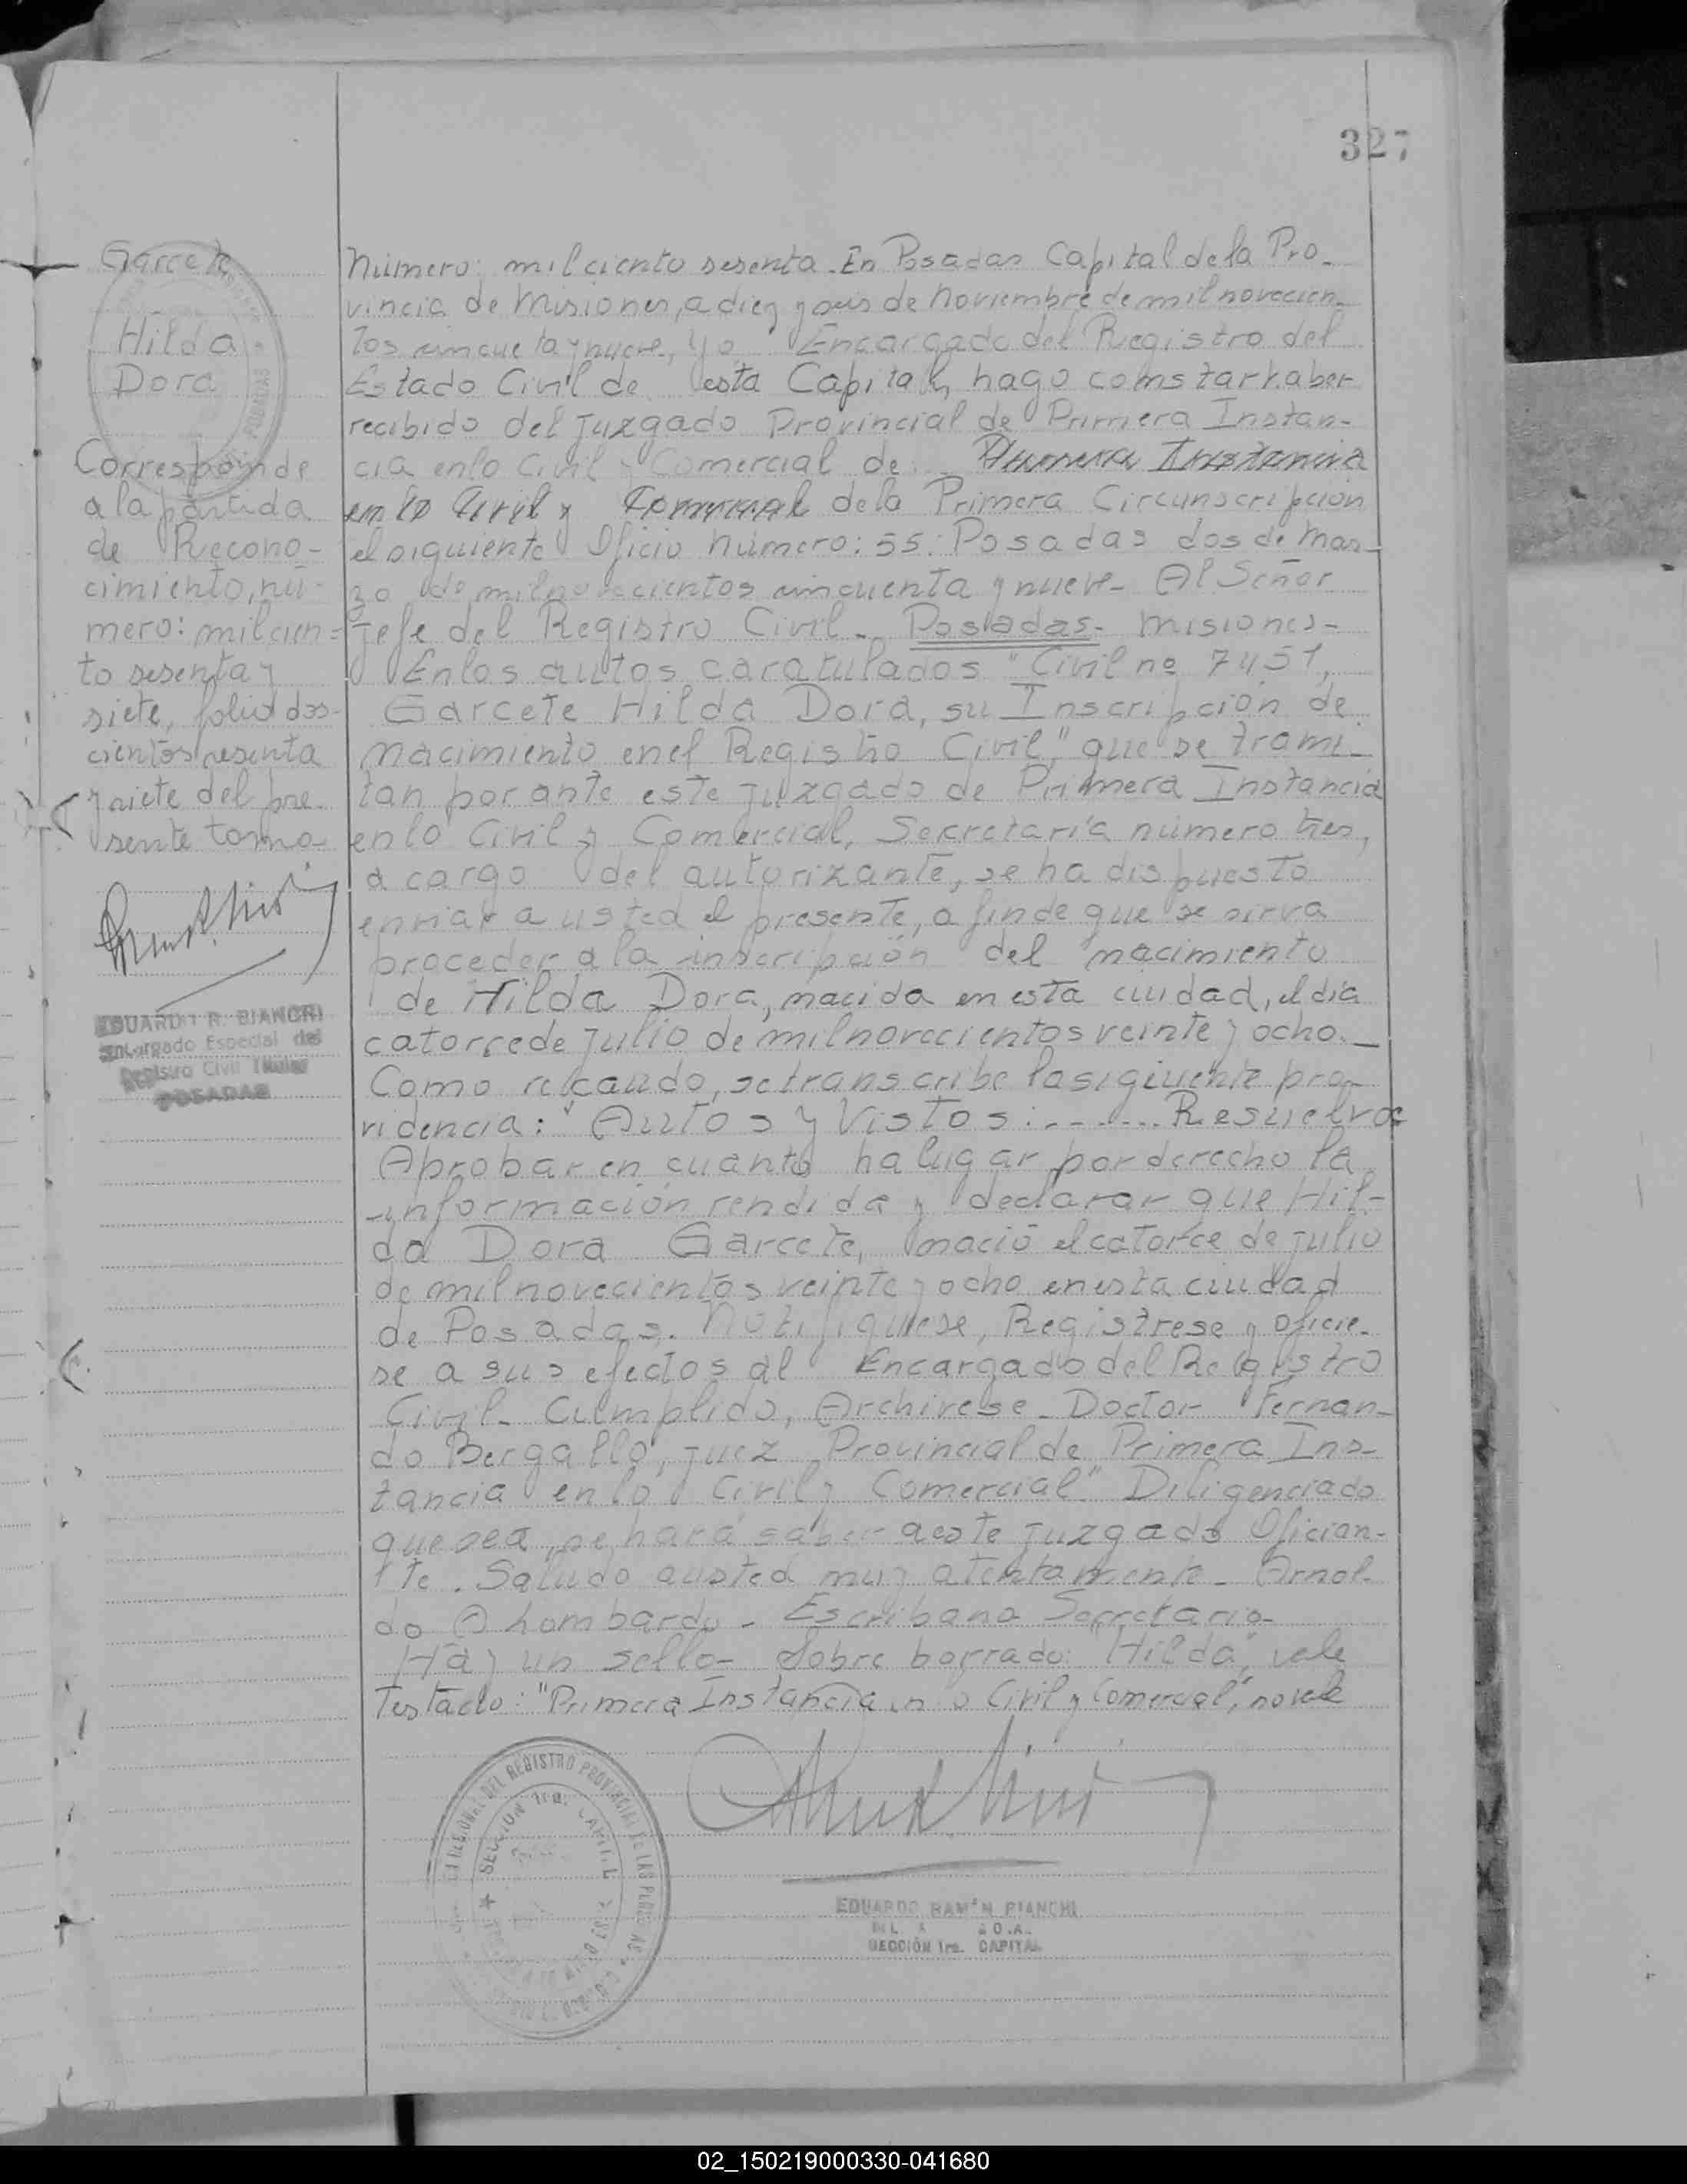 327
Garcete
Hilda
Dora
Corresponde
a la partida
de Recono-
cimiento, nú-
mero: mil cien-
to sesenta y
siete, folio dos-
cientos sesenta
y siete del pre-
sente tomo
EDUARDO R. BIANCHI
Encargado Especial del
Registro Civil Titular
POSADAS
Número: mil ciento sesenta. En Posadas Capital de la Pro-
vincia de Misiones, a diez y seis de Noviembre de mil novecien-
tos cincueta y nueve, Yo Encargado del Registro del
Estado Civil de esta Capital, hago constar haber
recibido del Juzgado Provincial de Primera Instan-
cia en lo Civil y Comercial de: Primera Instancia
en lo Civil y Comercial de la Primera Circunscripción
el siguiente Oficio Número: 55: Posadas dos de Mar-
zo de mil novecientos cincuenta y nueve- Al Señor
Jefe del Registro Civil- Posadas- Misiones-
En los autos caratulados "Civil no 7451,
Garcete Hilda Dora, su Inscripción de
nacimiento en el Registro Civil" que se trami-
tan por ante este Juzgado de Primera Instancia
en lo Civil y Comercial, Secretaría número tres,
a cargo del autorizante, se ha dispuesto
enviar a usted el presente, a fin de que se sirva
proceder a la inscripción del nacimiento
de Hilda Dora, nacida en esta ciudad, el día
catorce de Julio de mil novecientos veinte y ocho.-
Como recaudo, se transcribe la sigiuente pro-
videncia: "Autos y Vistos:....... Resuelvo:
Aprobar en cuanto ha lugar por derecho la
información rendida y declarar que Hil-
da Dora Garcete, nació el catorce de julio
de mil novecientos veinte y ocho en esta ciudad
de Posadas. Notifiquese, Registrese y oficie-
se a sus efectos al Encargado del Registro
Civil- Cumplido, Archivese- Doctor Fernan-
do Bergallo, Juez Provincial de Primera Ins-
tancia en lo Civil y Comercial" Diligenciado
que sea, se hará saber a este Juzgado Ofician-
te. Saludo a usted muy atentamente- Arnol-
do A Lombardo- Escribano Secretario-
Hay un sello- Sobre borrado: "Hilda", vale
Testado: "Primera Instancia en lo Civil y Comercial", no vale
REGIONAL DEL REGISTRO PROVINCIAL DE LAS PERSONAS
SECCION 1ra. CAPITAL
EDUARDO RAMÓN BIANCHI
SECCIÓN 1ra. CAPITAL
02_150219000330-041680